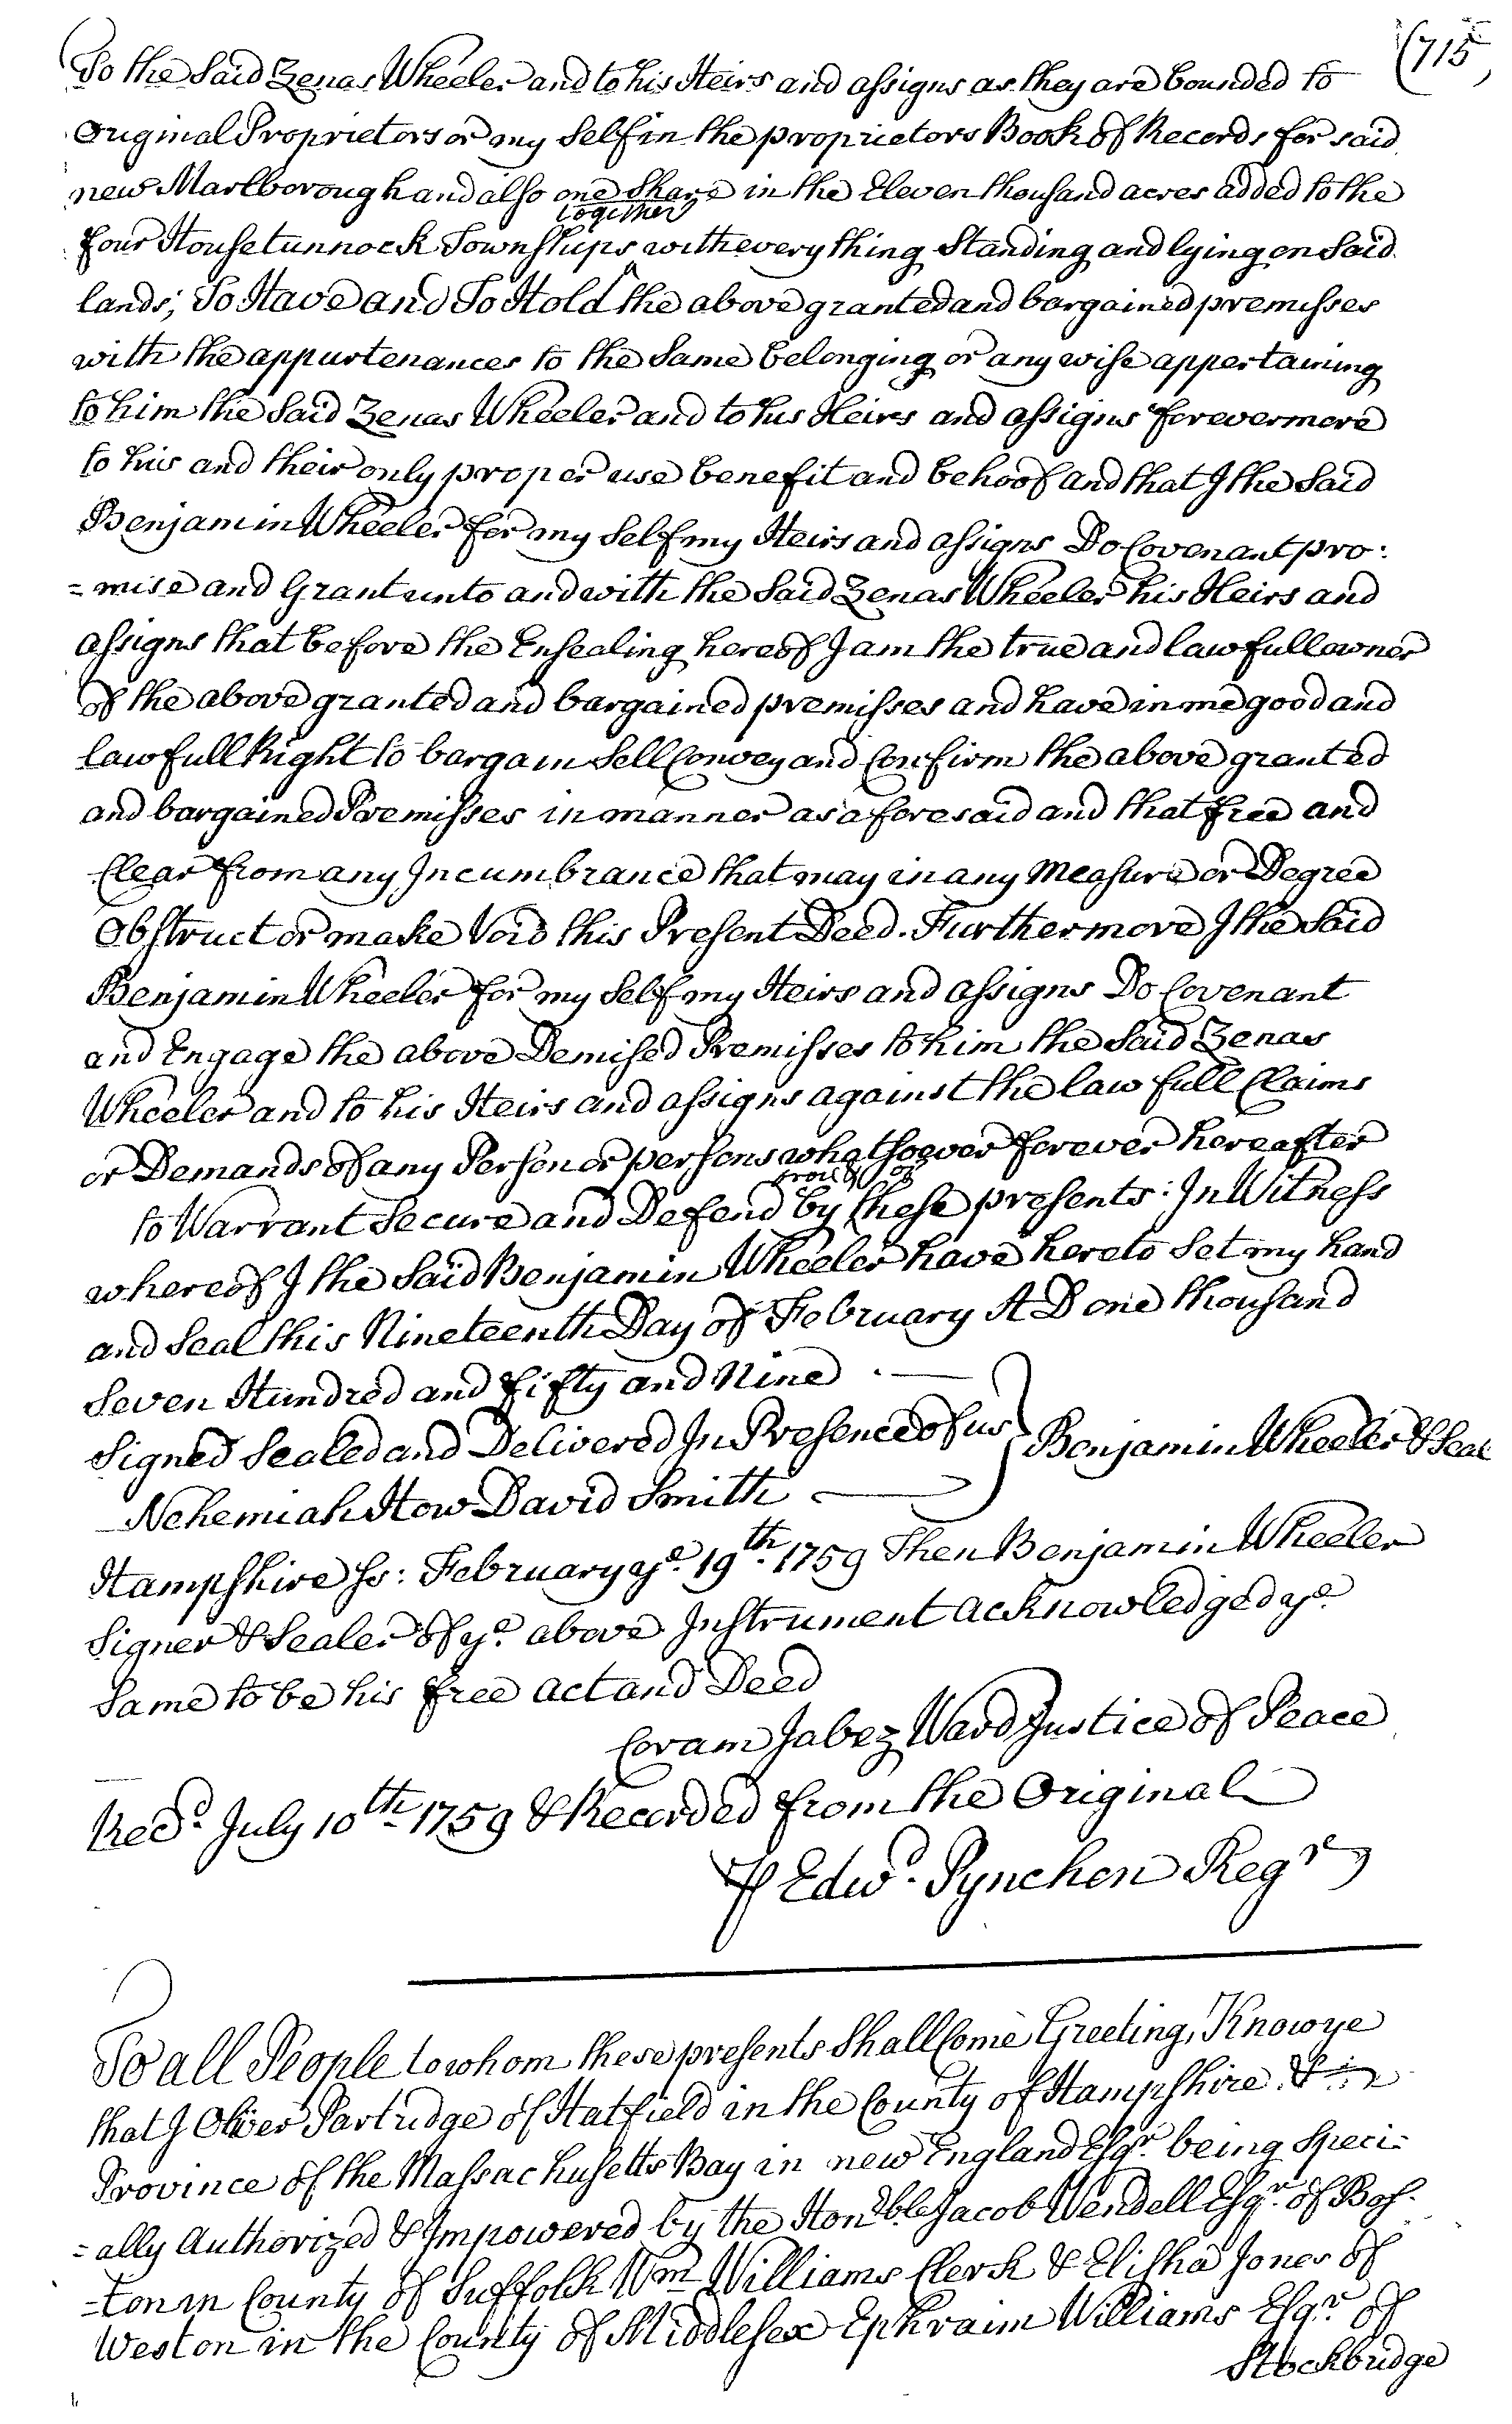 (715
To the Said Zenas Wheeler and to his Heirs and assigns as they are bounded to
Original Proprietors or my Self in the proprietors Book of Records for said
new Marlborough and also one Share in the Eleven thousand acres added to the
together
four Housetunnock Townships with every thing Standing and lying on Said
lands; To Have and To Hold ^ the above granted and bargained premisses
with the appurtenances to the Same belonging or any wise appertaining
to him the Said Zenas Wheeler and to his Heirs and assigns forevermore
to his and their only proper use benefit and behoof and that I the Said
Benjamin Wheeler for my Self my Heirs and assigns Do Covenant pro:
=mise and Grant unto and with the Said Zenas Wheeler his Heirs and
assigns that before the Ensealing hereof I am the true and lawfull owner
of the above granted and bargained premisses and have in me good and
lawfull Right to bargain Sell Convey and Confirm the above granted
and bargained Premisses in manner as aforesaid and that free and
Clear from any Incumbrance that may in any Measure or Degree
Obstruct or make Void this Present Deed. Furthermore I the Said
Benjamin Wheeler for my Self my Heirs and assigns Do Covenant
and Engage the above Demised Premisses to him the Said Zenas
Wheeler and to his Heirs and assigns against the lawfull Claims
or Demands of any Person or persons whatsoever forever hereafter
to Warrant Secure and Defend by these presents: In Witness
whereof I the Said Benjamin Wheeler have hereto Set my hand
and Seal this Nineteenth Day of February A D one thousand
Seven Hundred and fifty and Nine
Signed Sealed and Delivered In Presence of us } Benjamin Wheeler & Seal
Nehemiah How David Smith
Hampshire Ss: February ye. 19th. 1759 Then Benjamin Wheeler
Signer & Sealer of ye. above Instrument acknowledged ye.
Same to be his free act and Deed
Coram Jabez Ward Justice of Peace
Recd. July 10th 1759 & Recorded from the Original
⅌ Edwd. Pynchon Regr
To all People to whom these presents Shall Come Greeting, Know ye
that I Oliver Partridge of Hatfield in the County of Hampshire &
Province of the Massachusetts Bay in new England Esqr. being Speci=
=ally Authorized & Impowered by the Honble Jacob Wendell Esqr. of Bos-
=ton in County of Suffolk Wm Williams Clerk & Elisha Jones of
Weston in the County of Middlesex Ephraim Williams Esqr. of
Stockbridge